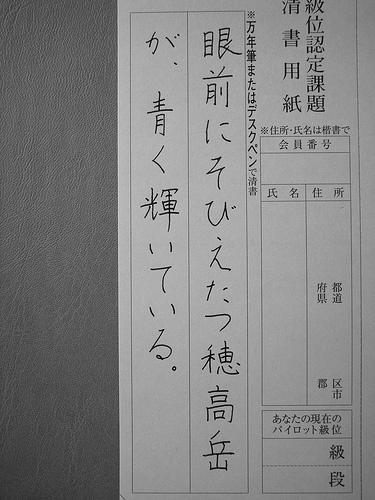 級位認定課題
清書用紙
※住所・氏名は楷書で
会員番号
氏名
住所
都道
府県
区市
郡
あなたの現在の
パイロット級位
級
段
※万年筆またはデスクペンで清書
眼前にそびえたつ穂高岳
が、青く輝いている。